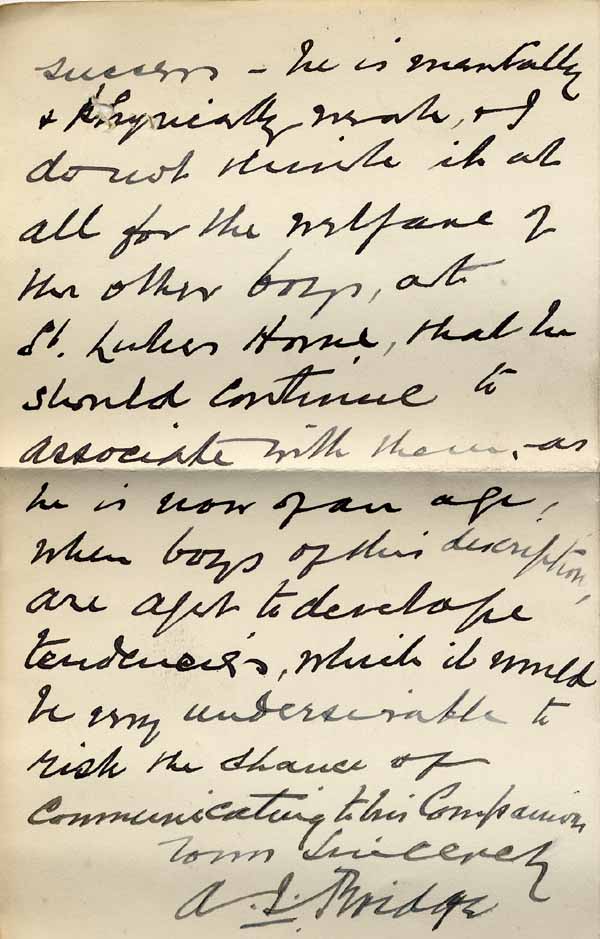 success - he is mentally
& physically weak, & I
do not think it at
all for the welfare of
the other boys, at
St. Lukes Home, that he
should continue to
associate with them, - as
he is now of an age,
when boys of this description,
are apt to develope
tendencies, which it would
be very undersirable to
risk the chance of
communicating to his Companions
Yours Sincerely
A. Bridge